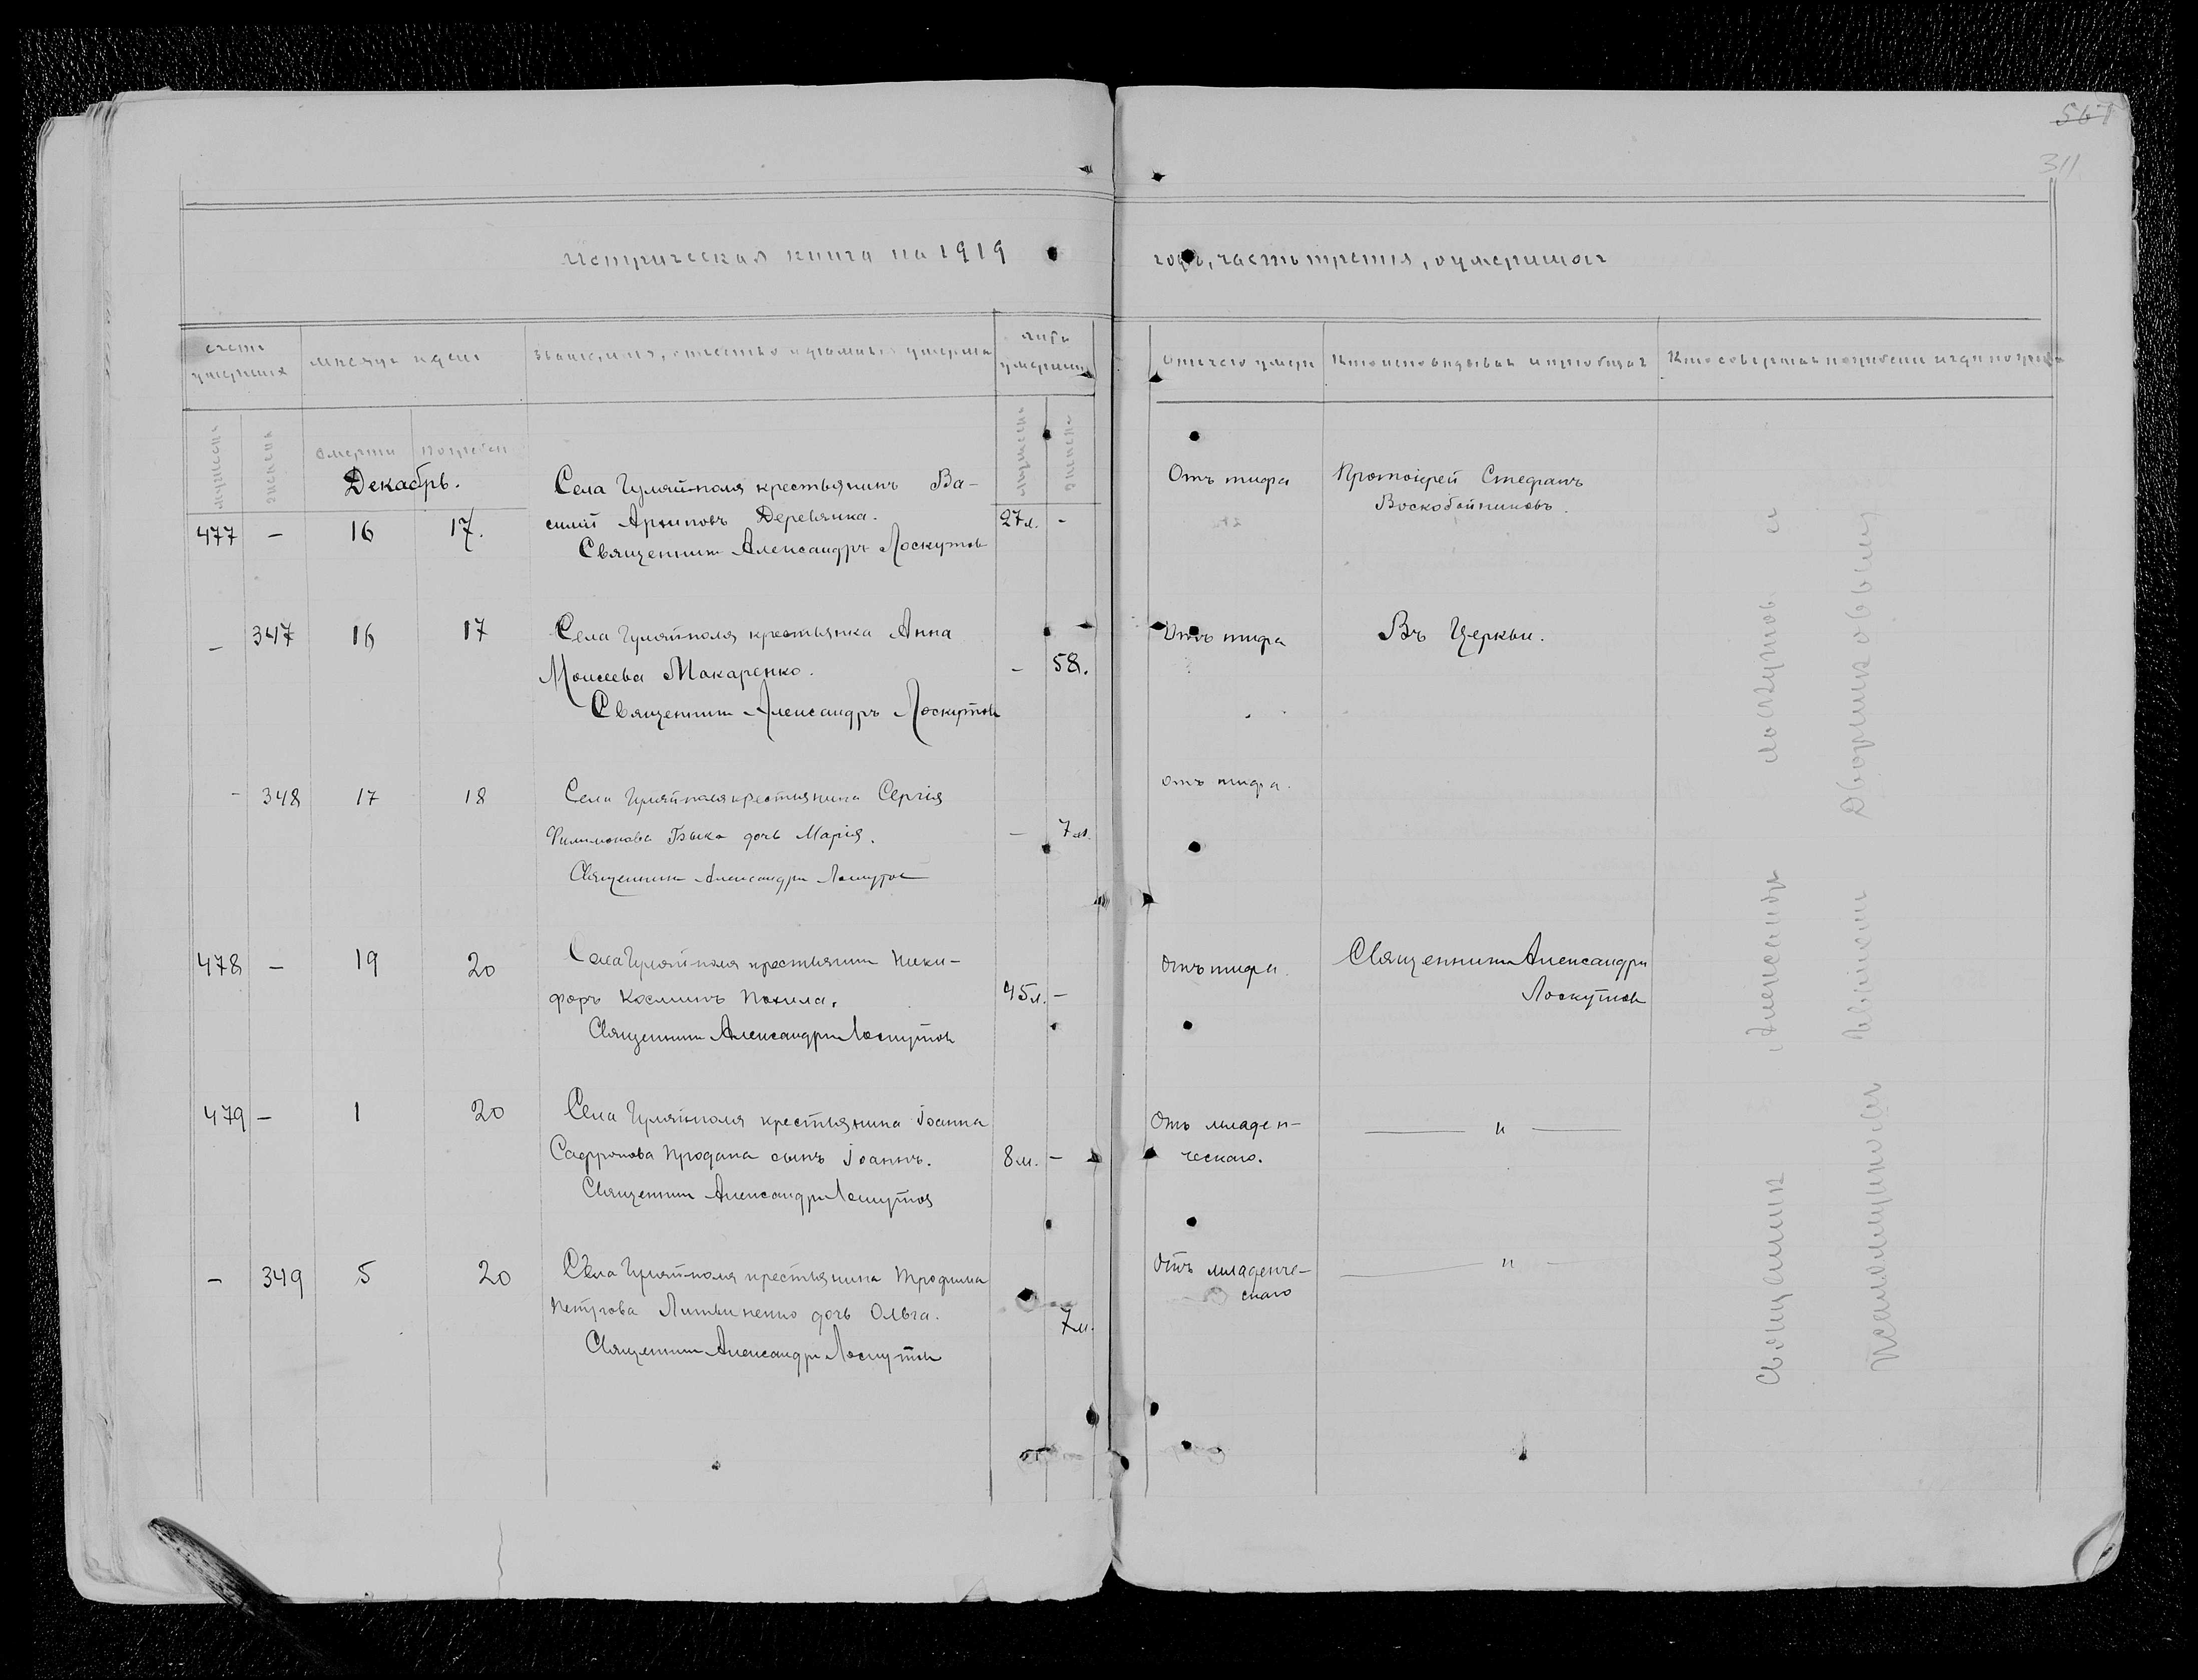 567
311
Метрическая книга на 1919
годъ, часть третія, о умершихъ
счетъ умершихъ
мѣсяцъ и день
званіе, имя, отчество и фамилія умерша
лѣта умершихъ
Отъ чего умеръ
Кто исповѣдывалъ и пріобщалъ
Кто совершалъ погребеніе и гдѣ погреб
мужеска
женска
Смерти
Погребен
мужеска
женска
Декабрь.
477 - 16 17.
Села Гуляйполя крестьянинъ Ва-
силій Архиповъ Деревянка.
Священникъ Александръ Лоскутовъ
27 л. -
Отъ тифа
Протоіерей Стефанъ
Воскобойниковъ.
- 347 16 17
Села Гуляйполя крестьянка Анна
Моисеева Макаренко.
Священникъ Александръ Лоскутовъ
- 58.
Отъ тифа
Въ Церкви.
- 348 17 18
Села Гуляйполя крестьянина Сергія
Филимонова Быка дочь Марія.
Священникъ Александръ Лоскутов
- 7 м.
Отъ тифа.
478 - 19 20
Села Гуляйполя крестьянинъ Ники-
форъ Космичъ Похила.
Священникъ Александръ Лоскутовъ
45 л. -
Отъ тифа.
Священникъ Александръ
Лоскутовъ
479 - 1 20
Села Гуляйполя крестьянина Іоанна
Сафронова Продана сынъ Іоаннъ.
Священникъ Александръ Лоскутов
8 м. -
Отъ младен-
ческаго.
— " —
- 349 5 20
Села Гуляйполя крестьянина Трофима
Петрова Литвиненко дочь Ольга.
Священникъ Александръ Лоскутовъ
7 м.
Отъ младенче-
скаго
— " —
Священникъ Александръ Лоскутовъ съ
Псаломщикомъ Дворниковымъ